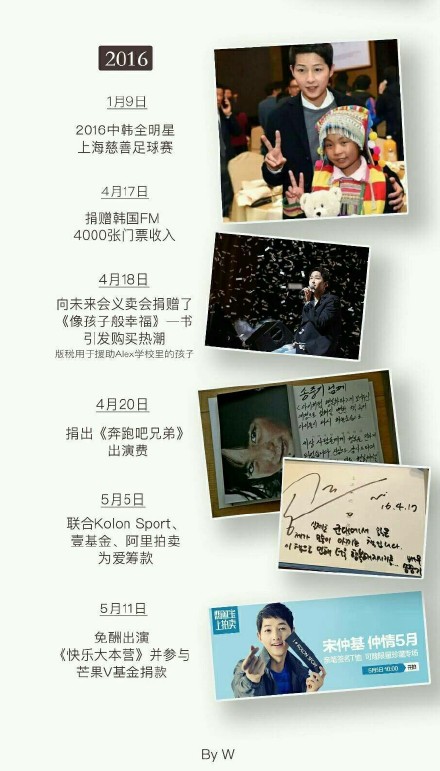 2016
1月9日
2016中韩全明星
上海慈善足球赛
4月17日
捐赠韩国FM
4000张门票收入
4月18日
向未来会义卖会捐赠了
《像孩子般幸福》一书
引发购买热潮
版税用于援助Alex学校里的孩子
4月20日
捐出《奔跑吧兄弟》
出演费
송중기 님께
5月5日
联合Kolon Sport、
壹基金、阿里拍卖
为爱筹款
16.4.17
5月11日
免酬出演
《快乐大本营》并参与
芒果V基金捐款
上拍卖
宋仲基 仲情5月
5月5日 10:00
By W